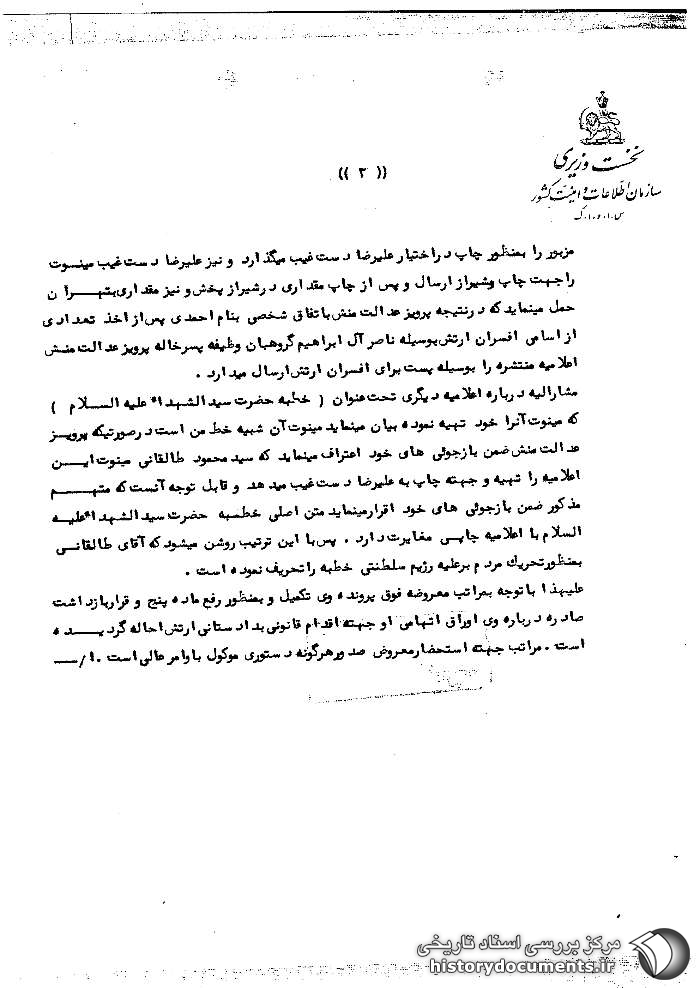 نخست وزیری
سازمان اطلاعات و امنیت کشور
(( ۳ ))
مزبور را بمنظور چاپ در اختیار علیرضا دست غیب میگذارد و نیز علیرضا دست غیب مینوت
را جهت چاپ و شیراز ارسال و پس از چاپ مقداری در شیراز پخش و نیز مقداری بتهران
حمل مینماید که در نتیجه پرویز عدالت منش با تفاق شخصی بنام احمدی پس از اخذ تعدادی
از اسامی افسران ارتش بوسیله ناصر آل ابراهیم گروهبان وظیفه پسرخاله پرویز عدالت منش
اعلامیه منتشره را بوسیله پست برای افسران ارتش ارسال میدارد .
مشارالیه درباره اعلامیه دیگری تحت عنوان ( خطبه حضرت سید الشهداء علیه السلام )
که مینوت آنرا خود تهیه نموده بیان مینماید مینوت آن شبیه خط من است در صورتیکه پرویز
عدالت منش ضمن بازجوئی های خود اعتراف مینماید که سید محمود طالقانی مینوت این
اعلامیه را تهیه و جهته چاپ به علیرضا دست غیب میدهد و قابل توجه آنست که متهم
مذکور ضمن بازجوئی های خود اقرار مینماید متن اصلی خطبه حضرت سید الشهداء علیه
السلام با اعلامیه چاپی مغایرت دارد . پس با این ترتیب روشن میشود که آقای طالقانی
بمنظور تحریک مردم بر علیه رژیم سلطنتی خطبه را تحریف نموده است .
علیهذا با توجه بمراتب معروضه فوق پرونده وی تکمیل و بمنظور رفع ماده پنج و قرار بازداشت
صادره درباره وی اوراق اتهامی او جهته اقدام قانونی بدادستانی ارتش احاله گردیده
است . مراتب جهته استحضار معروض صدور هرگونه دستوری موکول باوامر عالی است .
مرکز بررسی اسناد تاریخی
historydocuments.ir